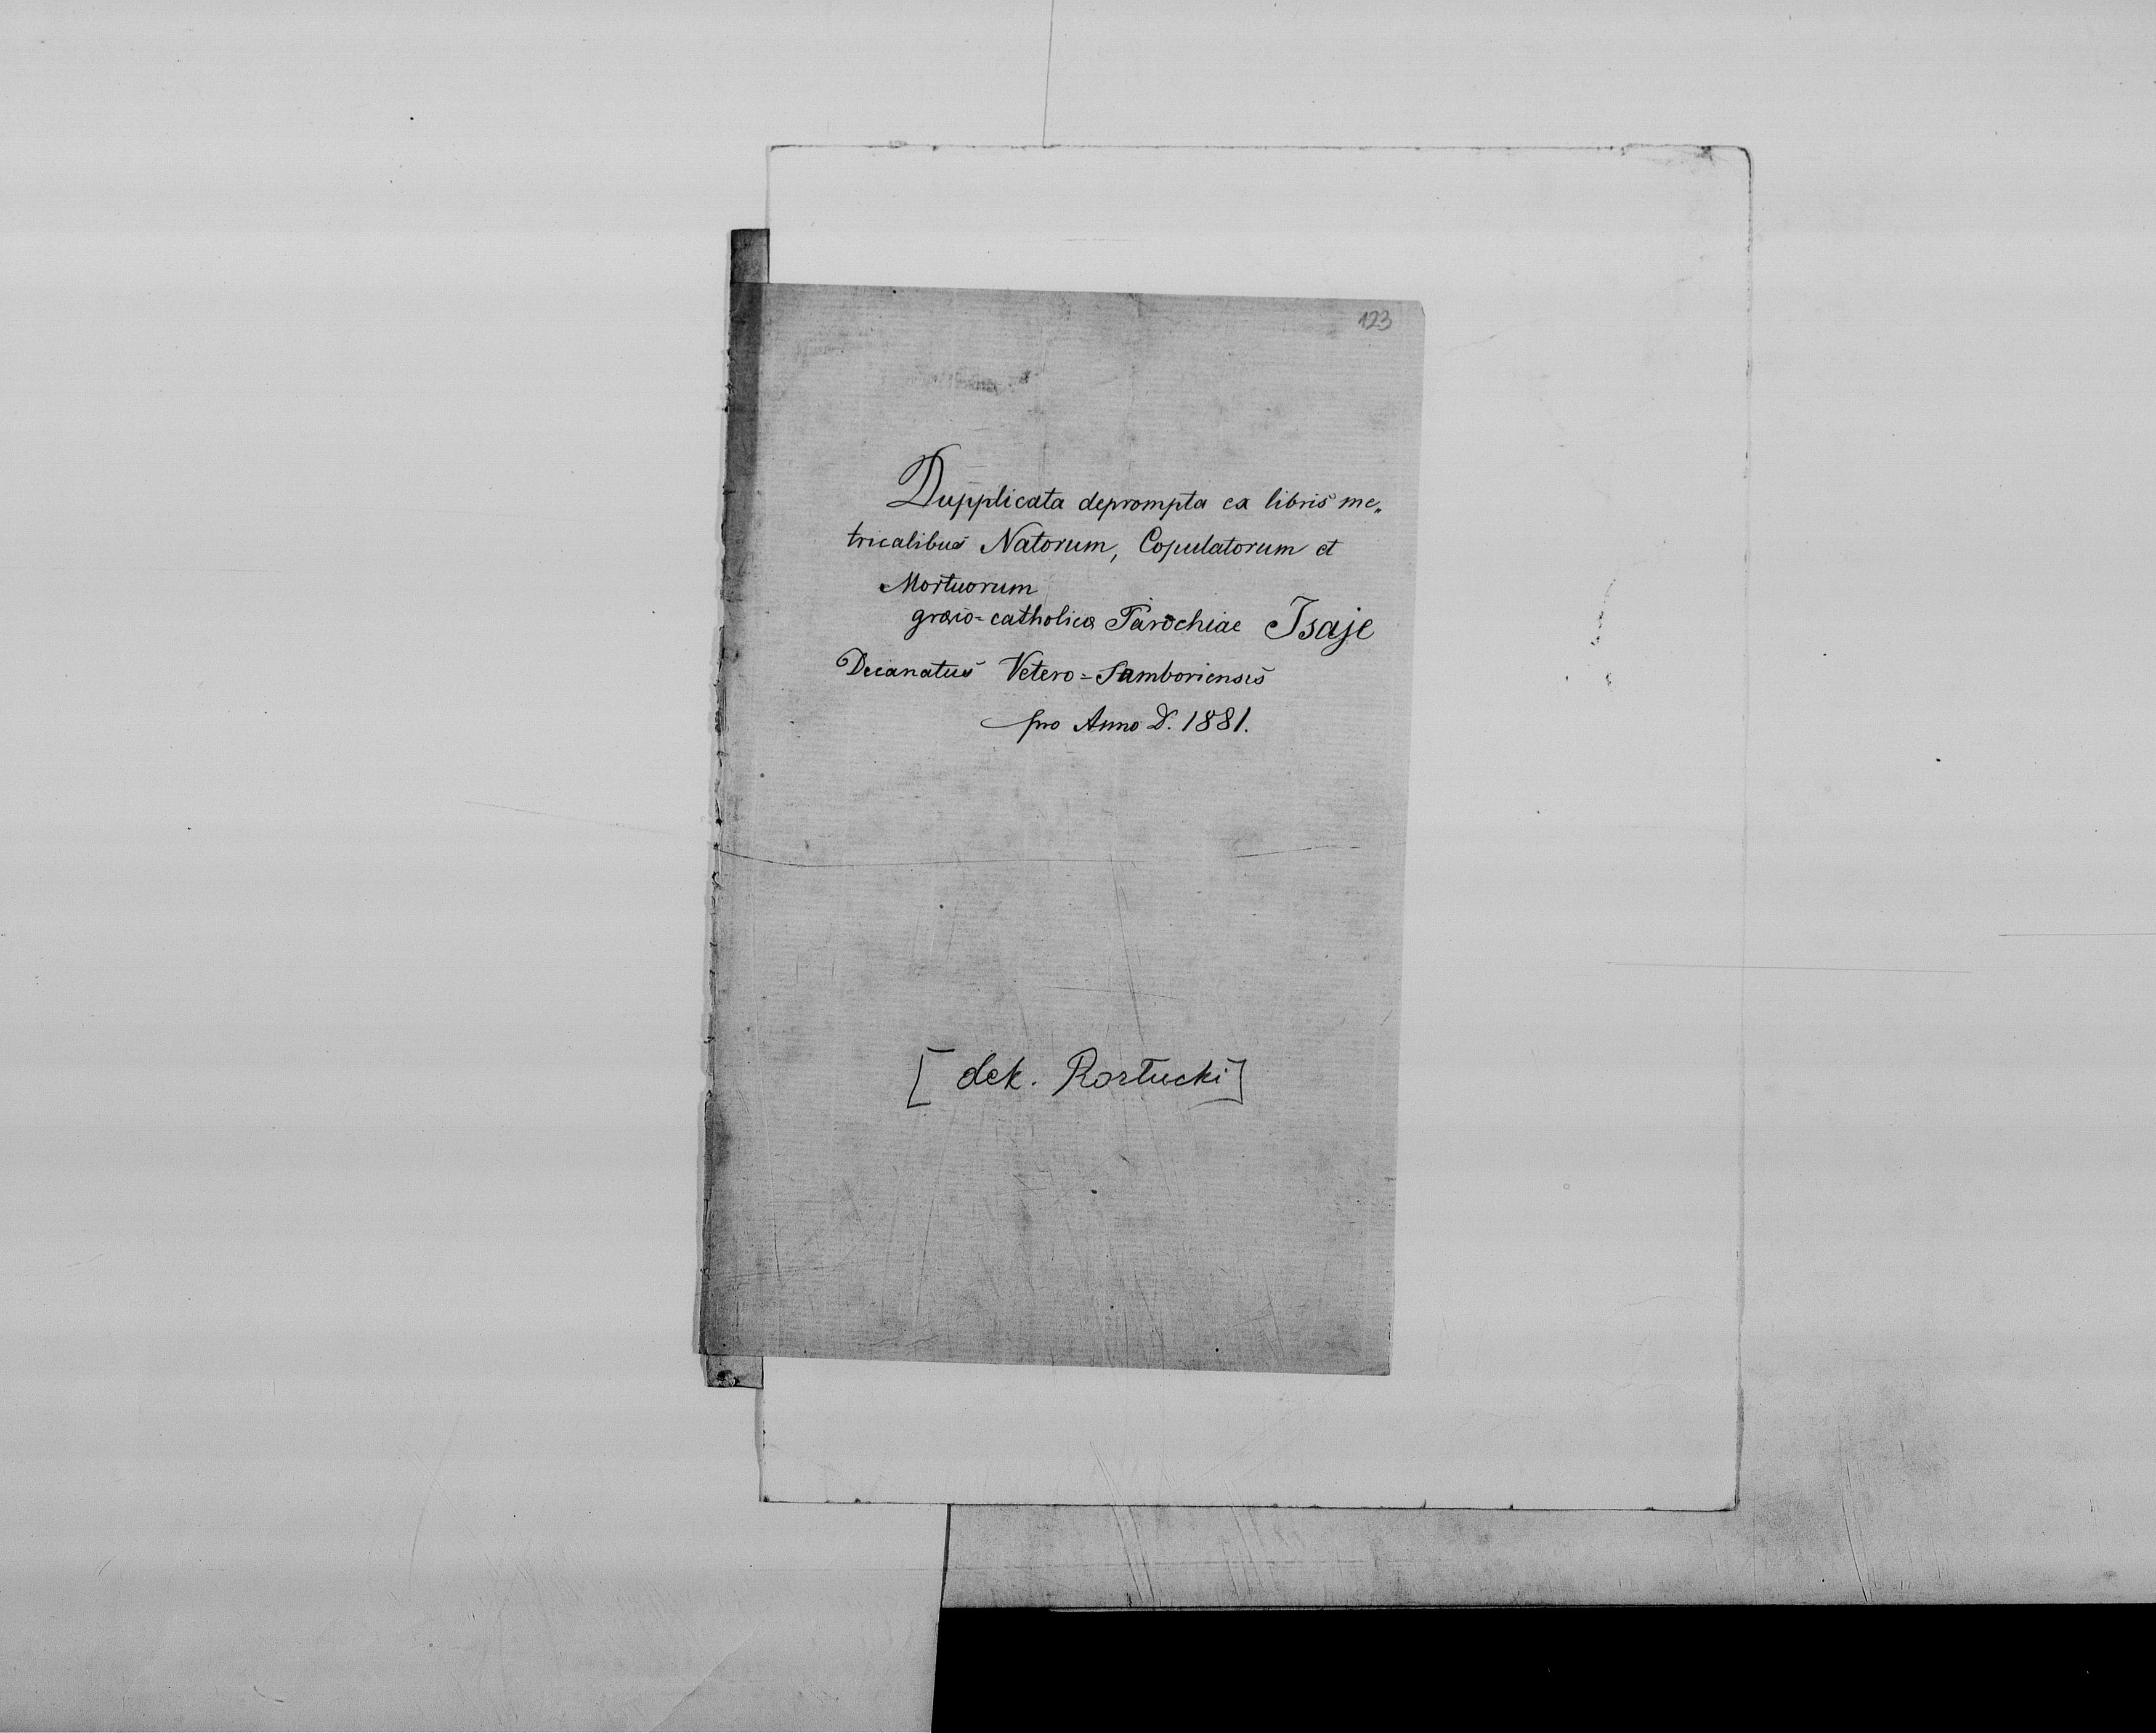 123
Dupplicata deprompta ex libris me„
tricalibus Natorum, Copulatorum et
Mortuorum
graeco=catholicae Parochiae Isaje
Decanatus Vetero=Samboriensis
pro Anno D. 1881.
[dek. Rozłucki]